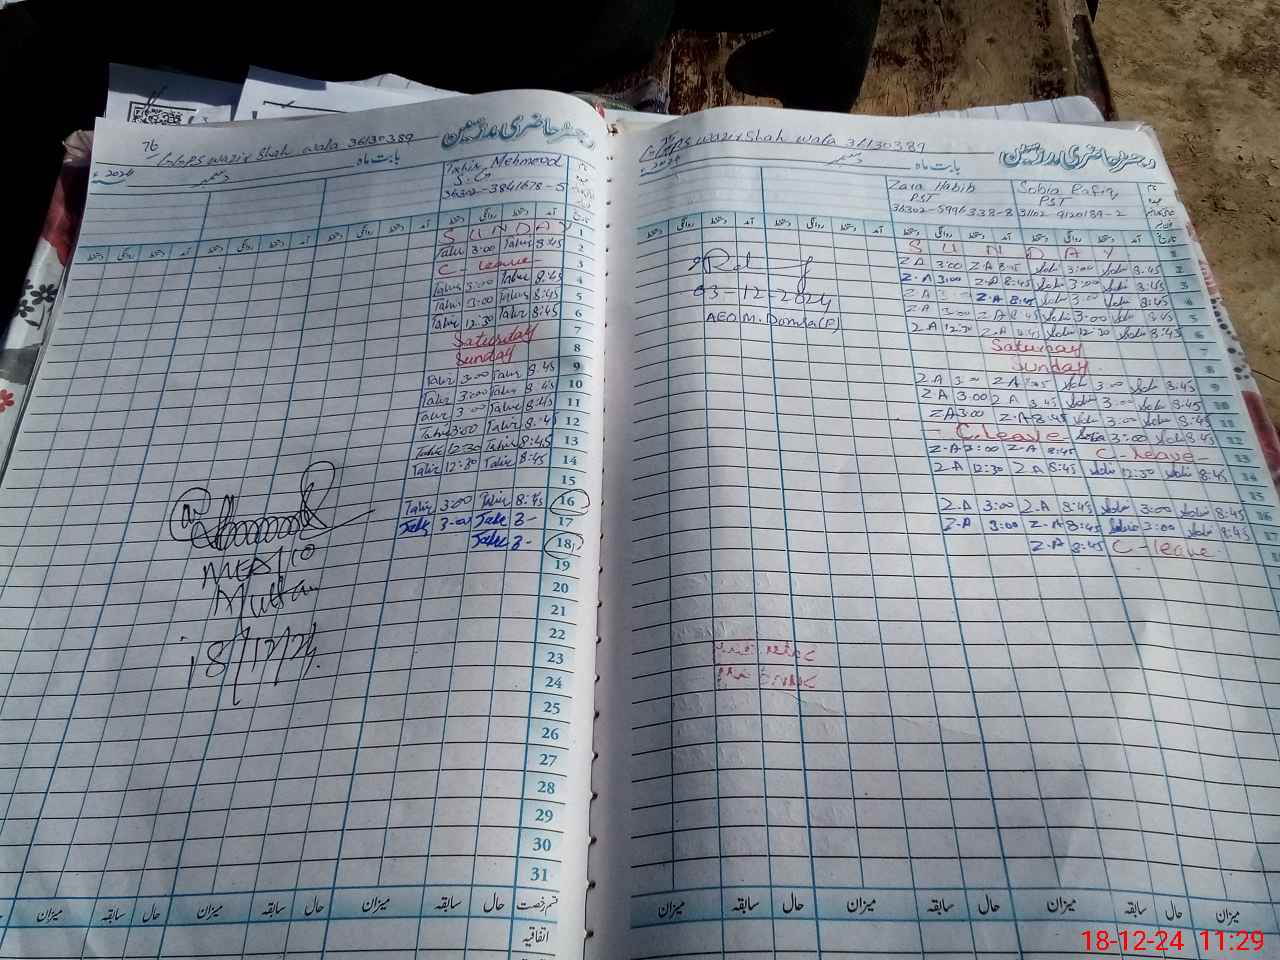 76
GGPS Wazir Shah wala 36130389
رجسٹر حاضری مدرسین
بابت ماہ دسمبر 2024ء
Tahir Mehmood
36302-3841678-5
تاریخ آمد دستخط روانگی دستخط آمد دستخط روانگی دستخط آمد دستخط روانگی دستخط آمد دستخط روانگی دستخط
1 SUNDAY
2 Tahir 3:00 Tahir 8:45
3 C-leave
4 Tahir 3:00 Tahir 8:45
5 Tahir 3:00 Tahir 8:45
6 Tahir 12:30 Tahir 8:45
7 Saturday
8 Sunday
9 Tahir 3:00 Tahir 8:45
10 Tahir 3:00 Tahir 8:45
11 Tahir 3:00 Tahir 8:45
12 Tahir 3:00 Tahir 8:4
13 Tahir 12:30 Tahir 8:45
14 Tahir 12:30 Tahir 8:45
15
16 Tahir 3:00 Tahir 8:45
17 3:00
18
19
20
21
22
23
24
25
26
27
28
29
30
31
Multan
18/12/24
قسم رخصت حال سابقہ میزان حال سابقہ میزان حال سابقہ میزان
اتفاقیہ
GGPS Wazir Shah wala 36130389
رجسٹر حاضری مدرسین
بابت ماہ دسمبر 2024ء
Zara Habib Sobia Rafiq
PST PST
36302-5996338-8 31102-9120189-2
SUNDAY 1
Z A 3:00 Z A 8:45 Sobi 3:00 Sobi 8:45 2
Z.A 3:00 Z.A 8:45 Sobi 3:00 Sobi 8:45 3
Z A Z.A 8:45 Sobi 3:00 Sobi 8:45 4
Z A 3:00 Z A 8:45 Sobi 3:00 Sobi 8:45 5
Z A 12:30 Z A 8:45 Sobi 12:30 Sobi 8:45 6
Saturday 7
Sunday 8
Z.A 3:00 Z A 8:45 Sobi 3:00 Sobi 8:45 9
Z A 3:00 Z A 8:45 Sobi 3:00 Sobi 8:45 10
Z A 3:00 Z.A 8:45 Sobi 3:00 Sobi 8:45 11
C.leave Sobia 3:00 Sobi 8:45 12
Z.A 3:00 Z A 8:45 C-leave 13
Z A 12:30 Z A 8:45 Sobi 12:30 Sobi 8:45 14
15
Z.A 3:00 Z.A 8:45 Sobi 3:00 Sobi 8:45 16
Z.A 3:00 Z.A 8:45 Sobia 3:00 Sobi 8:45 17
Z.A 8:45 C-leave
03-12-2024
AEO M. Domra (F)
میزان سابقہ حال میزان سابقہ حال میزان سابقہ حال میزان
18-12-24 11:29